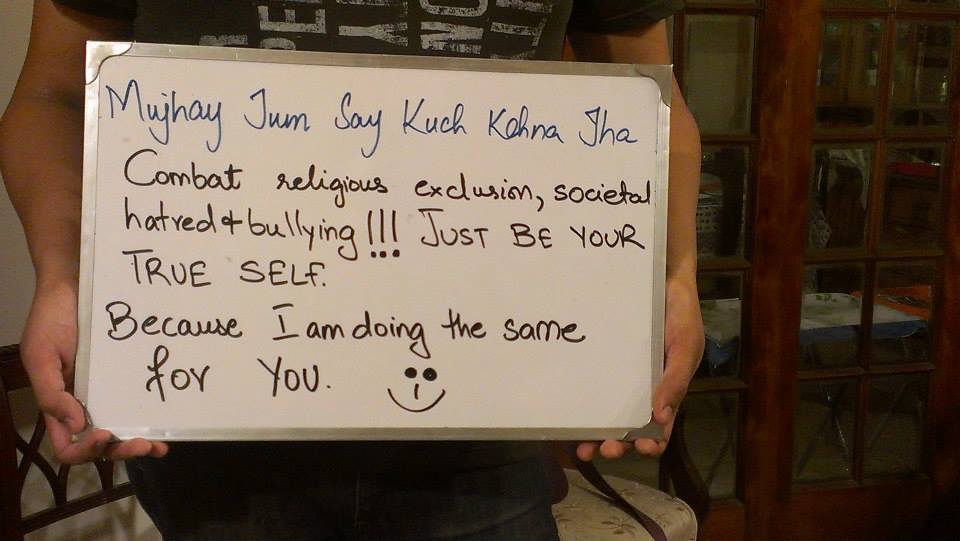 Mujhay Tum Say Kuch Kehna Tha
Combat religious exclusion, societal
hatred & bullying!!! JUST BE YOUR
TRUE SELF.
Because I am doing the same
for YOU.